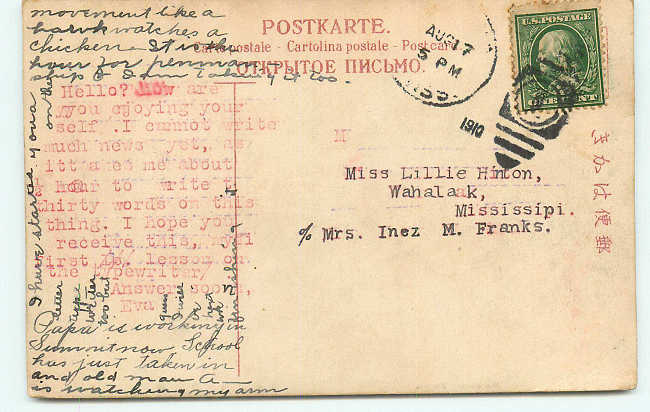 movement like a
hawk watches a
chicken. It is the
hour for penman-
ship & I am taking it too.
POSTKARTE.
Carte postale - Cartolina postale - Postcard
ОТКРЫТОЕ ПИСЬМО.
AUG 17
5 PM
MISS.
1910
U.S. POSTAGE
ONE CENT
きかは便郵
Hello? How are
you ejoying your
self .I cannot write
much news yet, as
itt akes me about
hour to write t
thirty words on this
thing. I hope you
receive this,
first lesson on
the typewriter/
Answer soon,
Eva
Miss Lillie Hinton,
Wahalaak,
Mississipi.
% Mrs. Inez M. Franks.
I have started you a
letter on the
type
writer
too but
guess
I will
finishing it
Papa is working in
Summit now School
has just taken in
and old man A—
is watching my arm